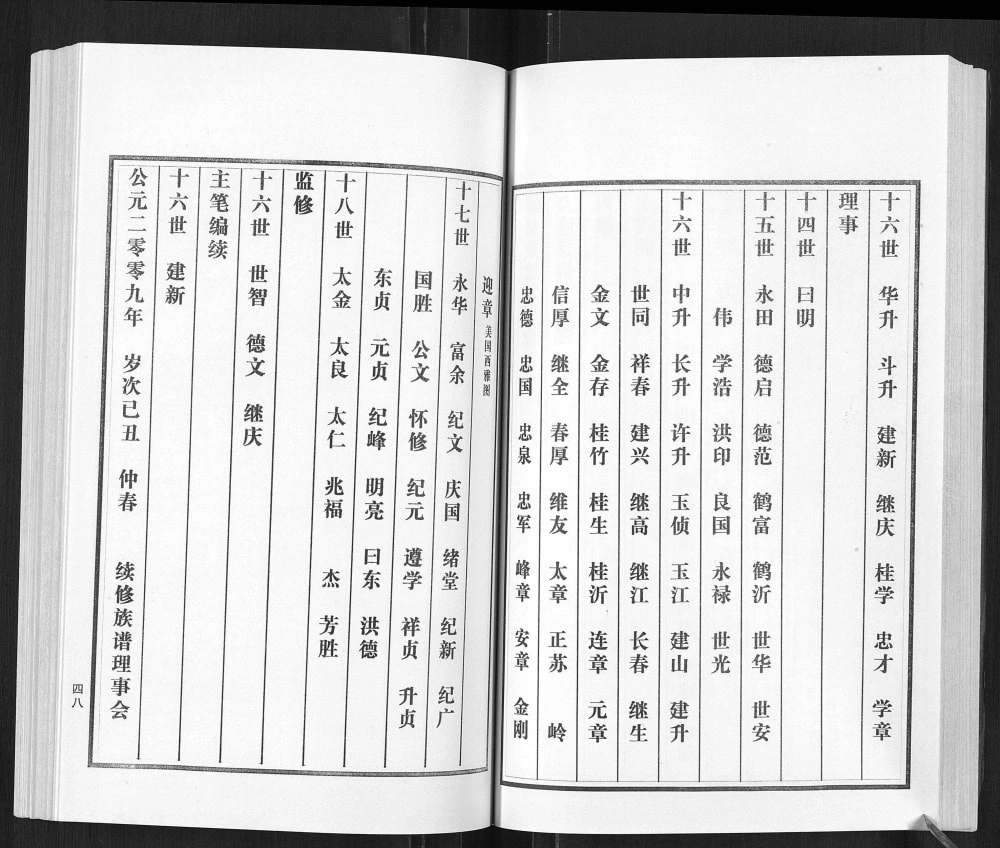 十六世 华升 斗升 建新 继庆 桂学 忠才 学章
理事
十四世 曰明
十五世 永田 德启 德范 鹤富 鹤沂 世华 世安
伟 学浩 洪印 良国 永禄 世光
十六世 中升 长升 许升 玉侦 玉江 建山 建升
世同 祥春 建兴 继高 继江 长春 继生
金文 金存 桂竹 桂生 桂沂 连章 元章
信厚 继全 春厚 维友 太章 正苏 岭
忠德 忠国 忠泉 忠军 峰章 安章 金刚
迎章 美国西雅图
十七世 永华 富余 纪文 庆国 绪堂 纪新 纪广
国胜 公文 怀修 纪元 遵学 祥贞 升贞
东贞 元贞 纪峰 明亮 曰东 洪德
十八世 太金 太良 太仁 兆福 杰 芳胜
监修
十六世 世智 德文 继庆
主笔编续
十六世 建新
公元二零零九年 岁次己丑 仲春 续修族谱理事会
四八